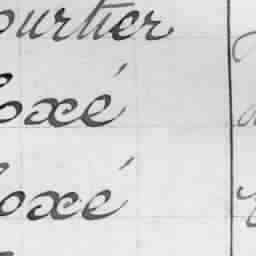 ourtier
oxé
oxé